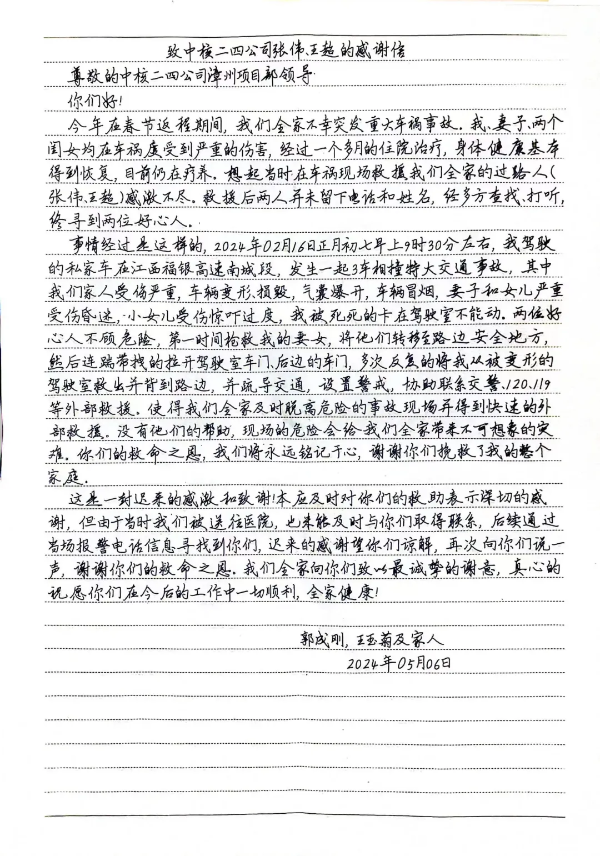 致中核二四公司张伟、王超的感谢信
尊敬的中核二四公司漳州项目部领导
你们好!
今年在春节返程期间,我们全家不幸突发重大车祸事故。我、妻子、两个
闺女均在车祸度受到严重的伤害,经过一个多月的住院治疗,身体健康基本
得到恢复,目前仍在疗养。想起当时在车祸现场救援我们全家的过路人(
张伟、王超)感激不尽。救援后两人并未留下电话和姓名,经多方查找、打听,
终寻到两位好心人。
事情经过是这样的,2024年02月16日正月初七早上9时30分左右,我驾驶
的私家车在江西福银高速南城段,发生一起3车相撞特大交通事故,其中
我们家人受伤严重,车辆变形、损毁、气囊爆开,车辆冒烟,妻子和女儿严重
受伤昏迷,小女儿受伤惊吓过度,我被死死的卡在驾驶室不能动。两位好
心人不顾危险,第一时间抢救我的妻女,将他们转移至路边安全地方,
然后连踹带拽的拉开驾驶室车门、后边的车门,多次反复的将我从被变形的
驾驶室救出并背到路边,并疏导交通,设置警戒,协助联系交警、120、119
等外部救援。使得我们全家及时脱离危险的事故现场并得到快速的外
部救援。没有他们的帮助,现场的危险会给我们全家带来不可想象的灾
难。你们的救命之恩,我们将永远铭记于心,谢谢你们挽救了我的整个
家庭。
这是一封迟来的感激和致谢!本应及时对你们的救助表示深切的感
谢,但由于当时我们被送往医院,也未能及时与你们取得联系,后续通过
当场报警电话信息寻找到你们,迟来的感谢望你们谅解,再次向你们说一
声,谢谢你们的救命之恩。我们全家向你们致以最诚挚的谢意,真心的
祝愿你们在今后的工作中一切顺利,全家健康!
郭成刚,王玉菊及家人
2024年05月06日